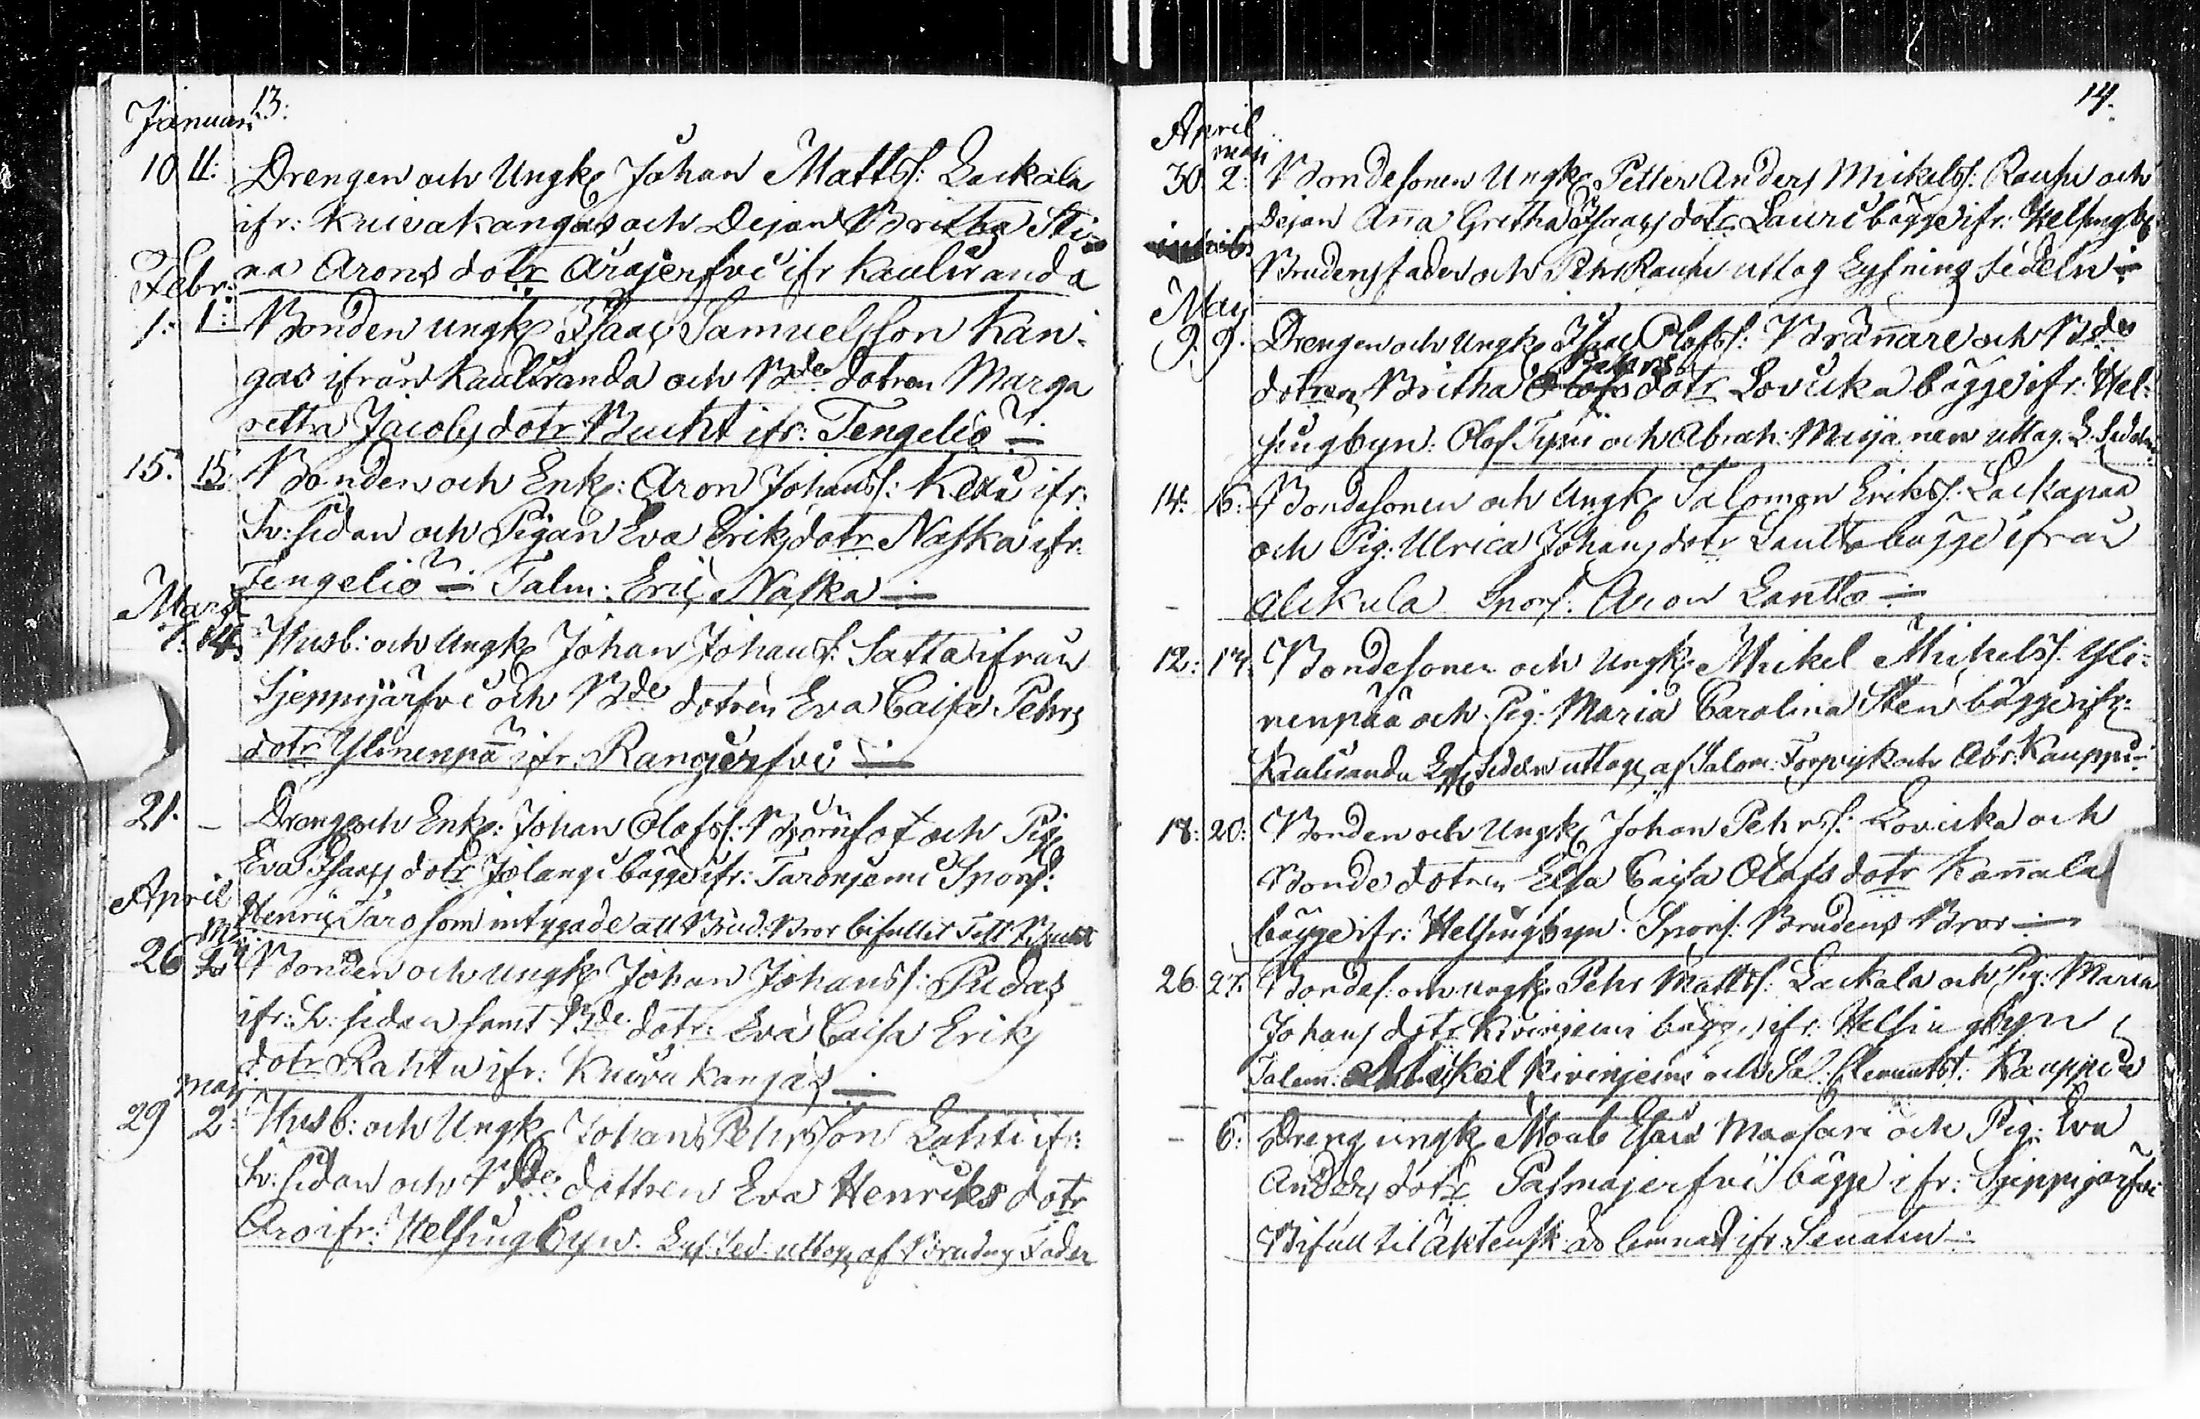 13:
Januari
10 11: Drengen och Ungk. Johan Mattss: Lackala
ifr: Kuivakangas och Dejan Britha Sti-
na Arons dotr Arajerfvi ifr Kauliranda
Febr.
1: 1: Bonden ungk. Isaac Samuelsson Kan-
gas ifrån Kauliranda och Bde dotren Marga
retha Jacobs dotr Bucht ifr: Tengeliö
15. 15 Bonden och Enk: Aron Johanss: Kexi ifr:
Sv: sidan och Pigan Eva Eriks dotr Naska ifr.
Tengeliö Talm: Eric Naska
Mars
7. 14. Husb: och Ungk Johan Johanss: Satta ifrån
Sjeppijärfvi och Bde dotren Eva Caisa Pehrs
dotr Ylinenpää ifr. Ranojerfvi
21. - Dreng och Enk: Johan Olofss: Björnfot och Pig
Eva Isaacs dotr Jolangi bägge ifr: Taronjemi Spors:
April
Henric Taro som intygade att Brud. Bror bifallit Sitt
26 Bonden och ungk Johan Johanss: Pudas
ifr: Sv: sidan samt Bde dotr: Eva Caisa Eriks
dotr Rahtu ifr: Kuivakangas
may
29 2: Husb: och Ungk Johan Pehrsson Lahti ifr:
Sv: sidan och Bde dottren Eva Henriks dotr
Aro ifr: Helsingbyn. Lys Sed. uttogs af Brudens Fader
14.
April
may
30. 2: Bondesonen Ungk. Petter Anders Mickelss: Rausu och
Dejan Anna Gretha Isaacs dotr Lauri bägge ifr: Helsingb:
Brudens fader och Pehr Rausu uttog Lysning sedeln
May
9. 9. Drengen och Ungk. Isaac Olofss: Brännare och Bdes
Pehrs
dotren Britha dotr Lovicka bägge ifr: Hel-
singbyn: Olof och Abrah: uttog. L. Sedeln
14: 16: Bondesonen och Ungk Salomon Erikss: Lackapää
och Pig: Ulrica Johans dotr Lantto bägge ifrån
Alckula Spors: Aron Lantto
12: 14. Bondesonen och Ungk. Mickel Mickelss: Yli-
nenpää och Pig: Maria Carolina Sten bägge ifr:
Kauliranda Lys Sedeln uttogs af Salom: och Abr: Kauppi
18: 20: Bonden och Ungk Johan Pehrss: Lovicka och
Bonde dotren Elsa Caisa Olofs dotr Kannala
bägge ifr: Helsingbyn. Spors: Brudens Bror
26. 27. Bondes: och Ungk. Pehr Mattss: Lackala och Pig: Maria
Johans dotr Kivinjemi bägge ifr: Helsingbyn
Talem: Mickel Kivinjemi och Kauppi
- 6: Dreng ungk. Noak Esais Maasari och Pig: Eva
Anders dotr Pasmajerfvi bägge ifr: Sjeppijärfvi
Bifall til äktensk. är lemnad ifr. Senaten